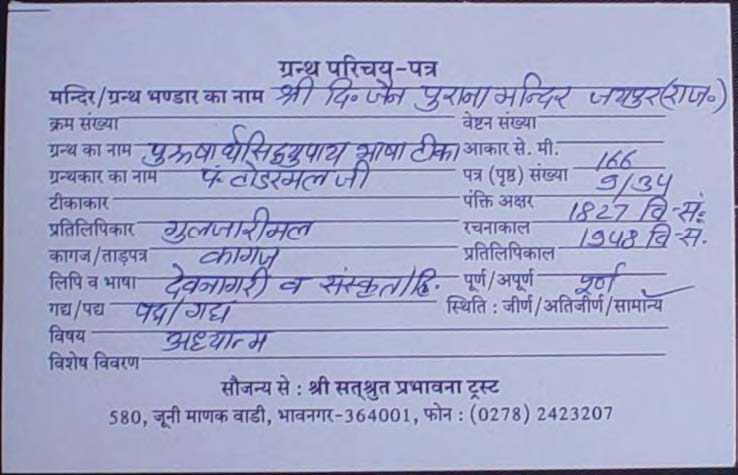 ग्रन्थ परिचय-पत्र
मन्दिर/ग्रन्थ भण्डार का नाम श्री दि० जैन पुराना मन्दिर जयपुर(राज०)
क्रम संख्या वेष्टन संख्या
ग्रन्थ का नाम पुरूषार्थसिद्धयुपाय भाषा टीका आकार से. मी.
ग्रन्थकार का नाम पं. टोडरमल जी पत्र (पृष्ठ) संख्या 166
टीकाकार पंक्ति अक्षर 9/34
प्रतिलिपिकार गुलजारीमल रचनाकाल 1827 वि-सं.
कागज/ताड़पत्र कागज प्रतिलिपिकाल 1948 वि-स.
लिपि व भाषा देवनागरी व संस्कृत/हि. पूर्ण/अपूर्ण पूर्ण
गद्य/पद्य पद्य/गद्य स्थिति : जीर्ण/अतिजीर्ण/सामान्य
विषय अध्यात्म
विशेष विवरण
सौजन्य से : श्री सत्श्रुत प्रभावना ट्रस्ट
580, जूनी माणक वाडी, भावनगर-364001, फोन : (0278) 2423207